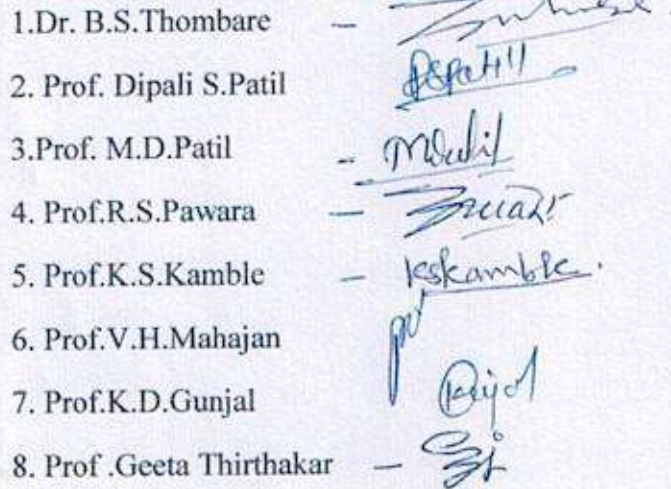 1.Dr. B.S.Thombare –
2. Prof. Dipali S.Patil DSPatil
3.Prof. M.D.Patil -
4. Prof.R.S.Pawara –
5. Prof.K.S.Kamble – kskamble.
6. Prof.V.H.Mahajan
7. Prof.K.D.Gunjal
8. Prof .Geeta Thirthakar –